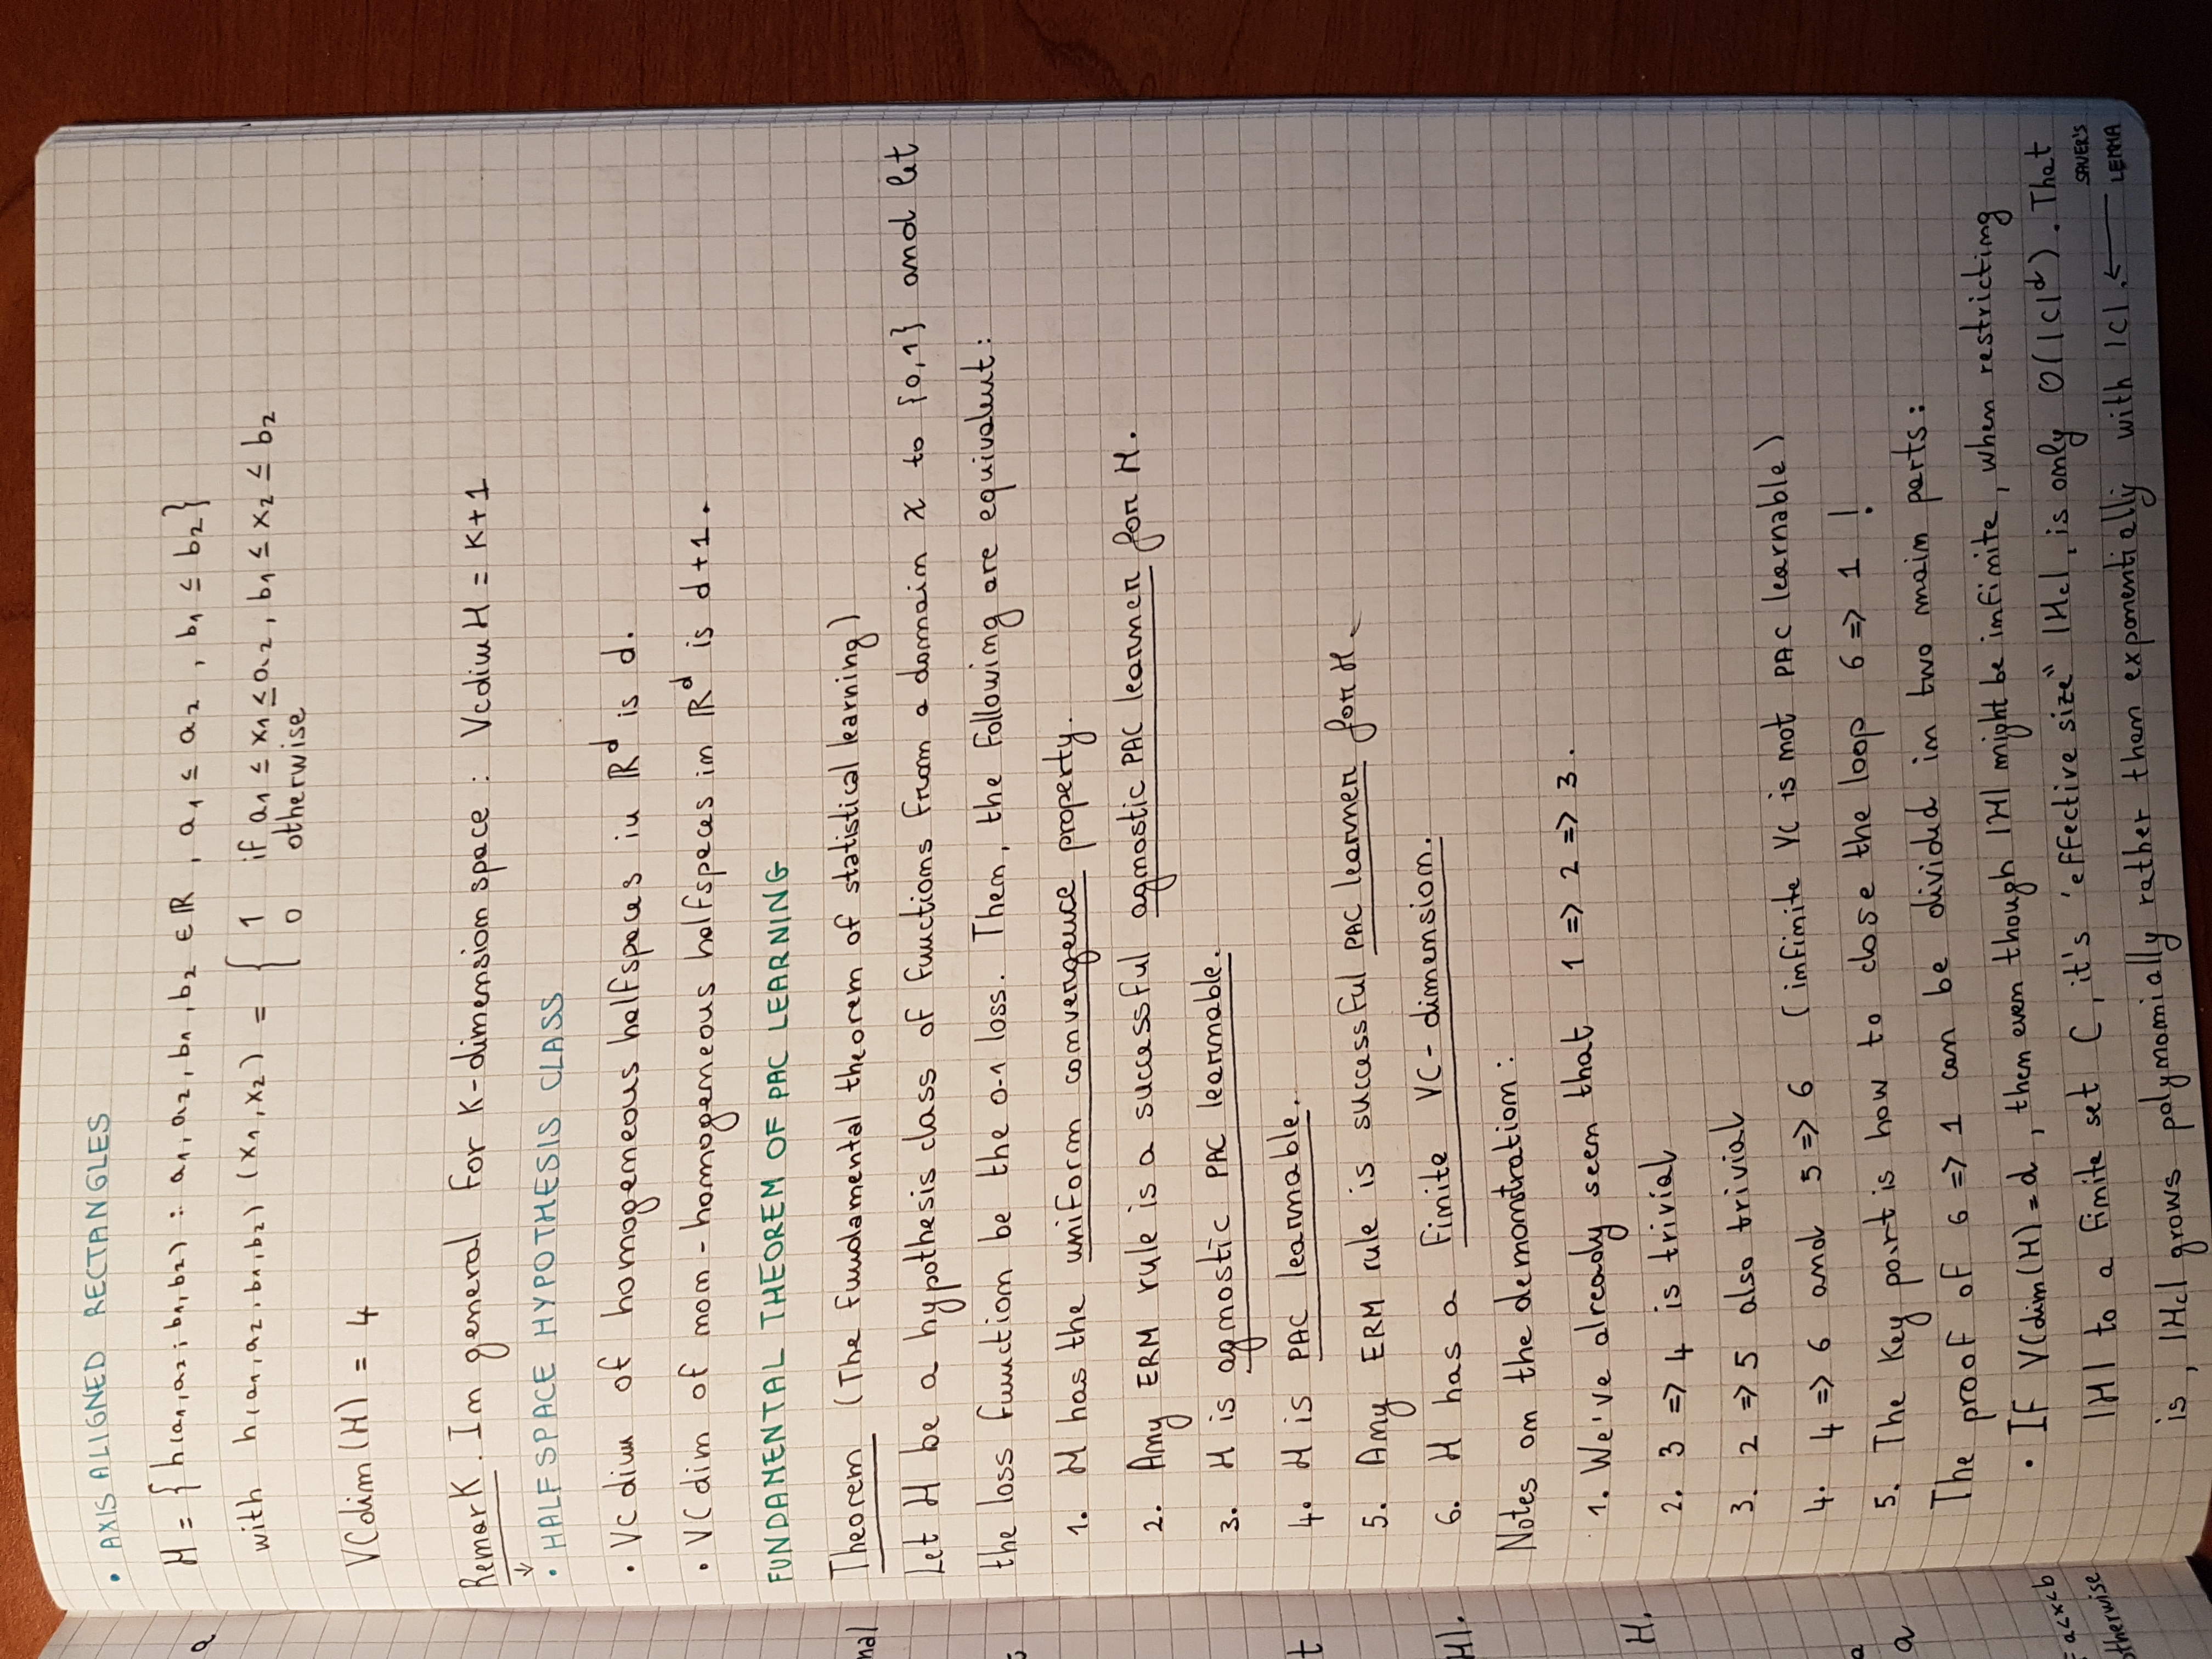 • AXIS ALIGNED RECTANGLES
H = { h(a1,a2,b1,b2) : a1, a2, b1, b2 ∈ ℝ , a1 ≤ a2 , b1 ≤ b2 }
with h(a1,a2,b1,b2) (x1,x2) = { 1 if a1 ≤ x1 ≤ a2, b1 ≤ x2 ≤ b2
0 otherwise
VCdim (H) = 4
Remark. In general for K-dimension space : VcdimH = K+1
↓
• HALFSPACE HYPOTHESIS CLASS
• VC dim of homogeneous halfspaces in ℝ^d is d.
• VCdim of non-homogeneous halfspaces in ℝ^d is d+1.
FUNDAMENTAL THEOREM OF PAC LEARNING
Theorem (The fundamental theorem of statistical learning)
Let H be a hypothesis class of functions from a domain X to {0,1} and let
the loss function be the 0-1 loss. Then, the following are equivalent:
1. H has the uniform convergence property.
2. Any ERM rule is a successful agnostic PAC learner for H.
3. H is agnostic PAC learnable.
4. H is PAC learnable.
5. Any ERM rule is successful PAC learner for H.
6. H has a finite VC-dimension.
Notes on the demonstration:
1. We've already seen that 1 => 2 => 3.
2. 3 => 4 is trivial
3. 2 => 5 also trivial
4. 4 => 6 and 5 => 6 (infinite VC is not PAC learnable)
5. The key part is how to close the loop 6 => 1 !
The proof of 6 => 1 can be divided in two main parts:
• If VCdim(H) = d, then even though |H| might be infinite, when restricting
|H| to a finite set C, it's "effective size" |Hc|, is only O(|C|^d). That
is, |Hc| grows polynomially rather than exponentially with |C|. ← SAUER'S
LEMMA
a
nal
t
H|.
H.
a
a
a<x<b
otherwise